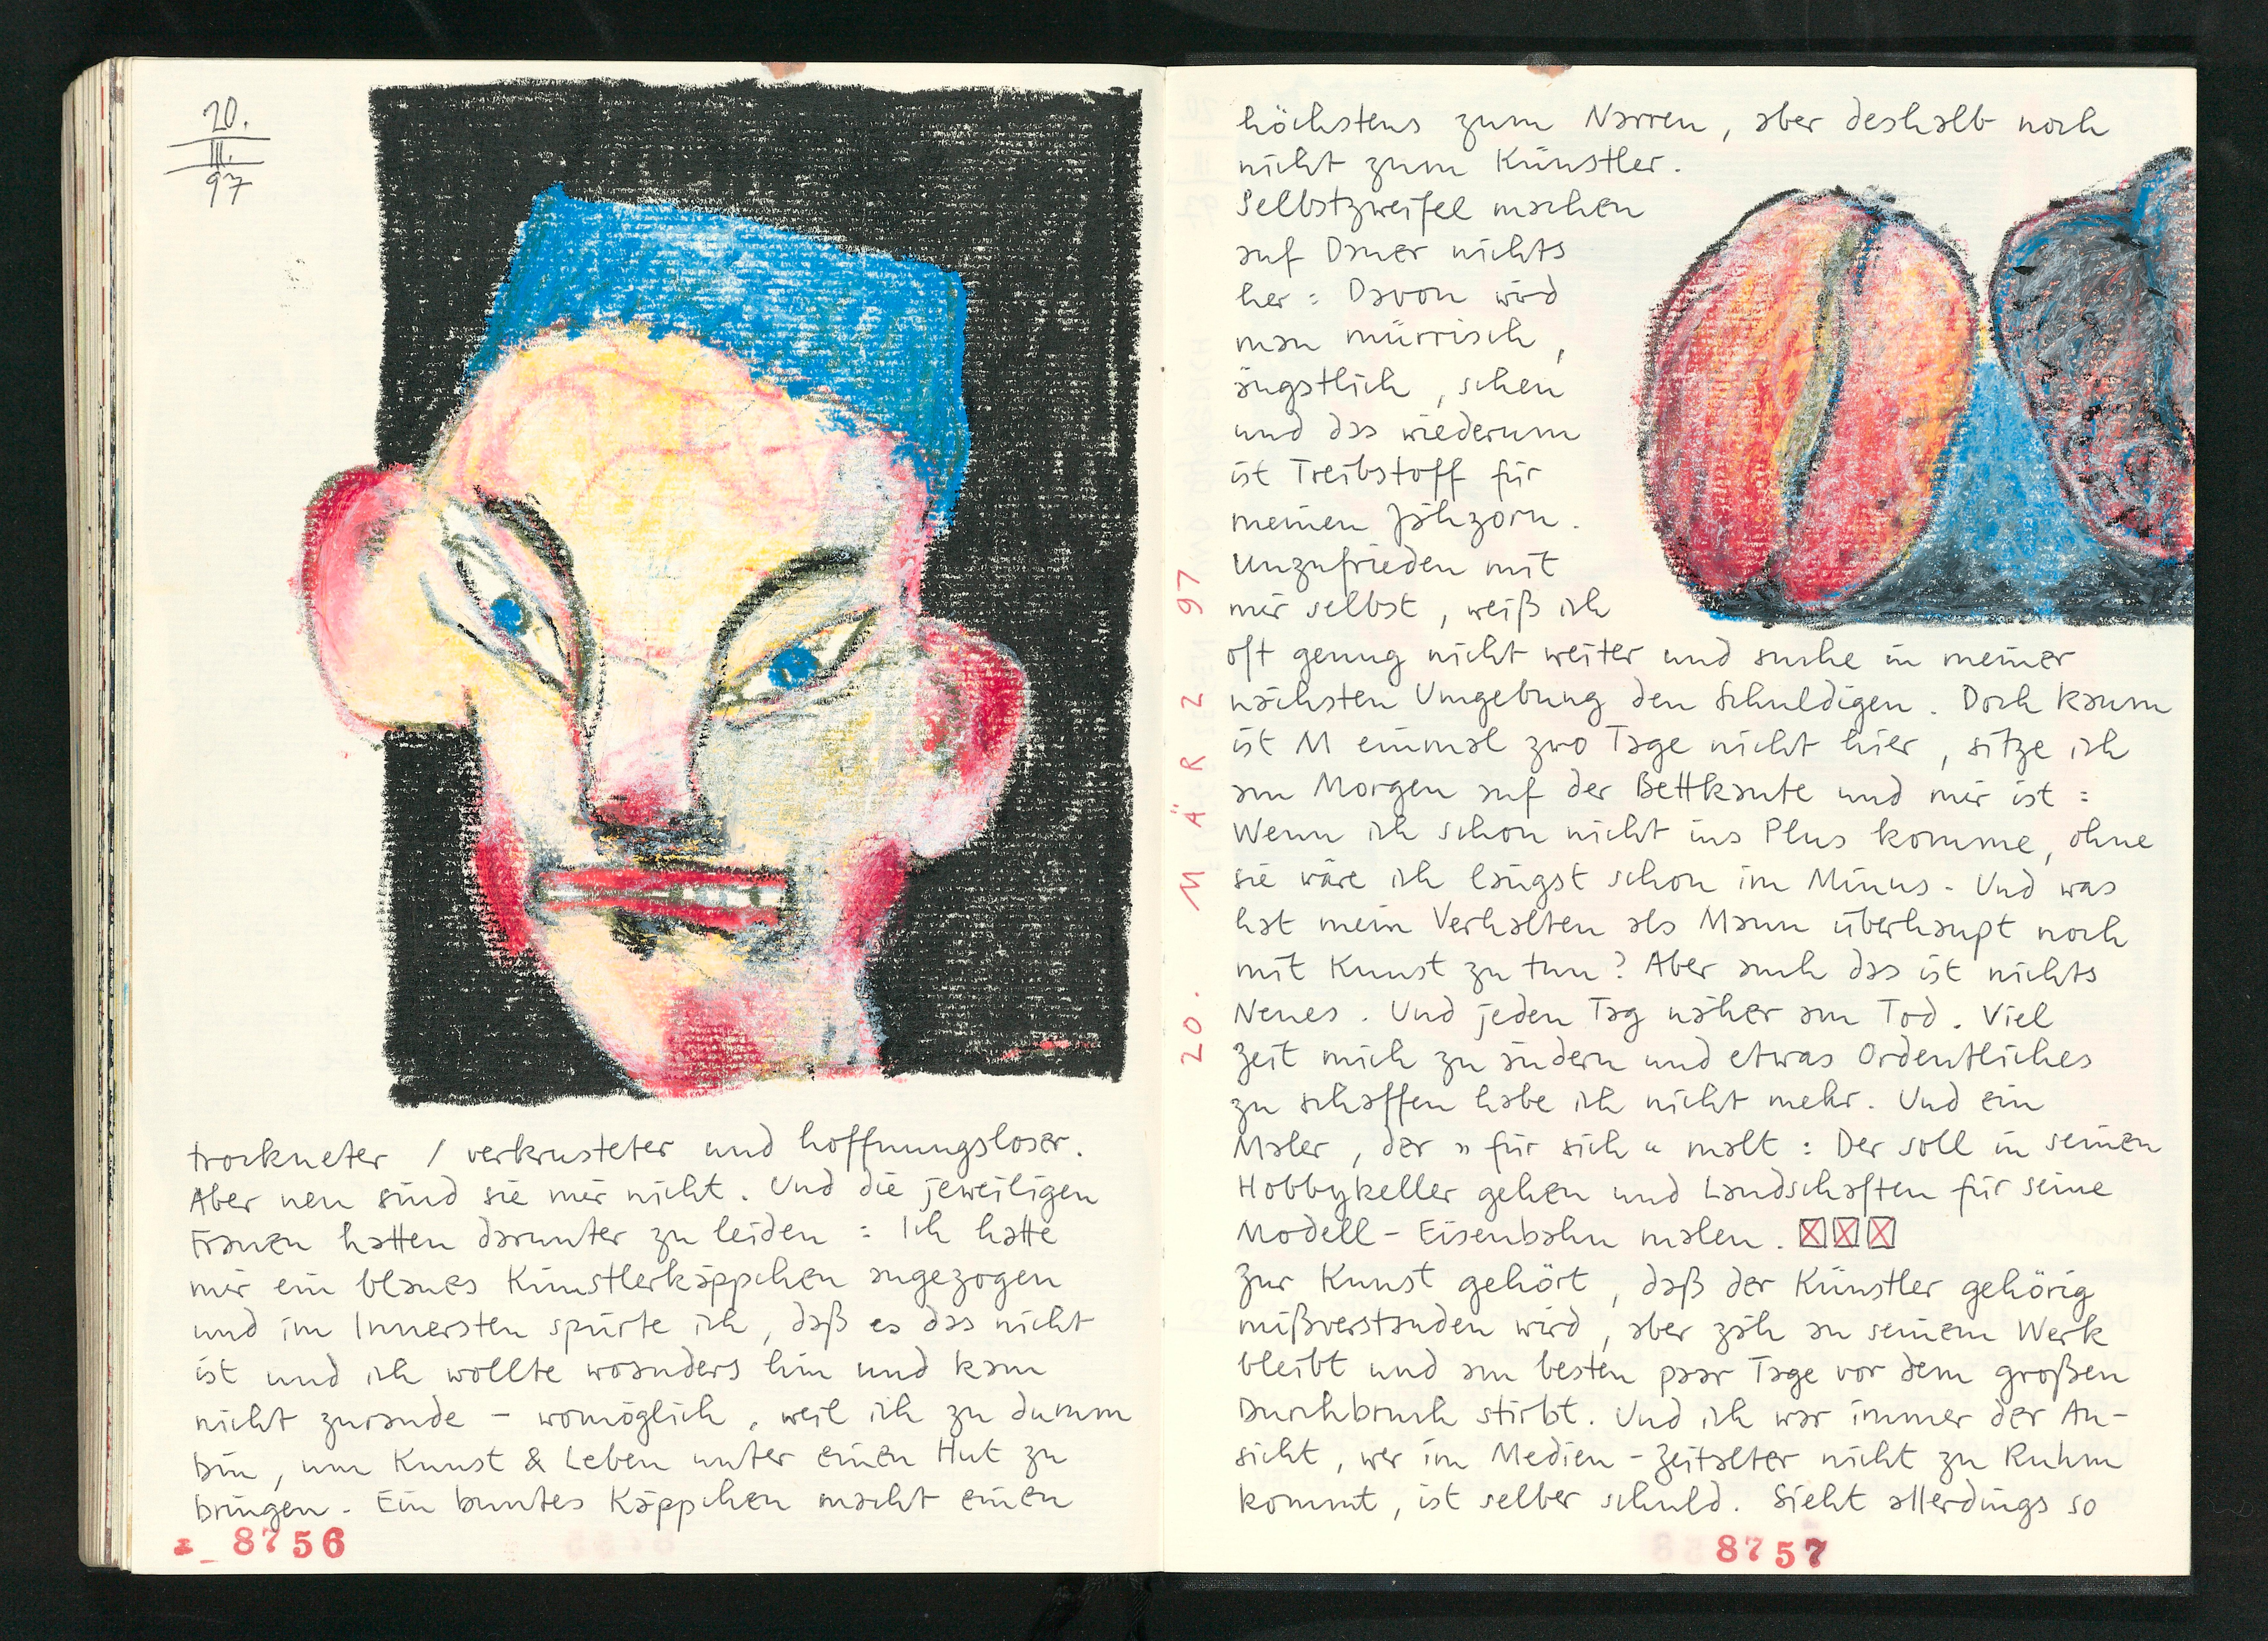 20.
III.
97
trockneter / verkrusteter und hoffnungsloser.
Aber neu sind sie mir nicht. Und die jeweiligen
Frauen hatten darunter zu leiden : Ich hatte
mir ein blaues Künstlerkäppchen angezogen
und im Innersten spürte ich, daß es das nicht
ist und ich wollte woanders hin und kam
nicht zurande – womöglich, weil ich zu dumm
bin, um Kunst & Leben unter einen Hut zu
bringen. Ein buntes Käppchen macht einen
8756
20. MÄRZ 97
höchstens zum Narren, aber deshalb noch
nicht zum Künstler.
Selbstzweifel machen
auf Dauer nichts
her : Davon wird
man mürrisch,
ängstlich, scheu
und das wiederum
ist Treibstoff für
meinen Jähzorn.
Unzufrieden mit
mir selbst, weiß ich
oft genug nicht weiter und suche in meiner
nächsten Umgebung den Schuldigen. Doch kaum
ist M einmal zwo Tage nicht hier, sitze ich
am Morgen auf der Bettkante und mir ist :
Wenn ich schon nicht ins Plus komme, ohne
sie wäre ich längst schon im Minus. Und was
hat mein Verhalten als Mann überhaupt noch
mit Kunst zu tun? Aber auch das ist nichts
Neues. Und jeden Tag näher am Tod. Viel
Zeit mich zu ändern und etwas Ordentliches
zu schaffen habe ich nicht mehr. Und ein
Maler, der » für sich « malt : Der soll in seinen
Hobbykeller gehen und Landschaften für seine
Modell-Eisenbahn malen. ☒☒☒
Zur Kunst gehört, daß der Künstler gehörig
mißverstanden wird, aber zäh an seinem Werk
bleibt und am besten paar Tage vor dem großen
Durchbruch stirbt. Und ich war immer der An-
sicht, wer im Medien-Zeitalter nicht zu Ruhm
kommt, ist selber schuld. Sieht allerdings so
8757